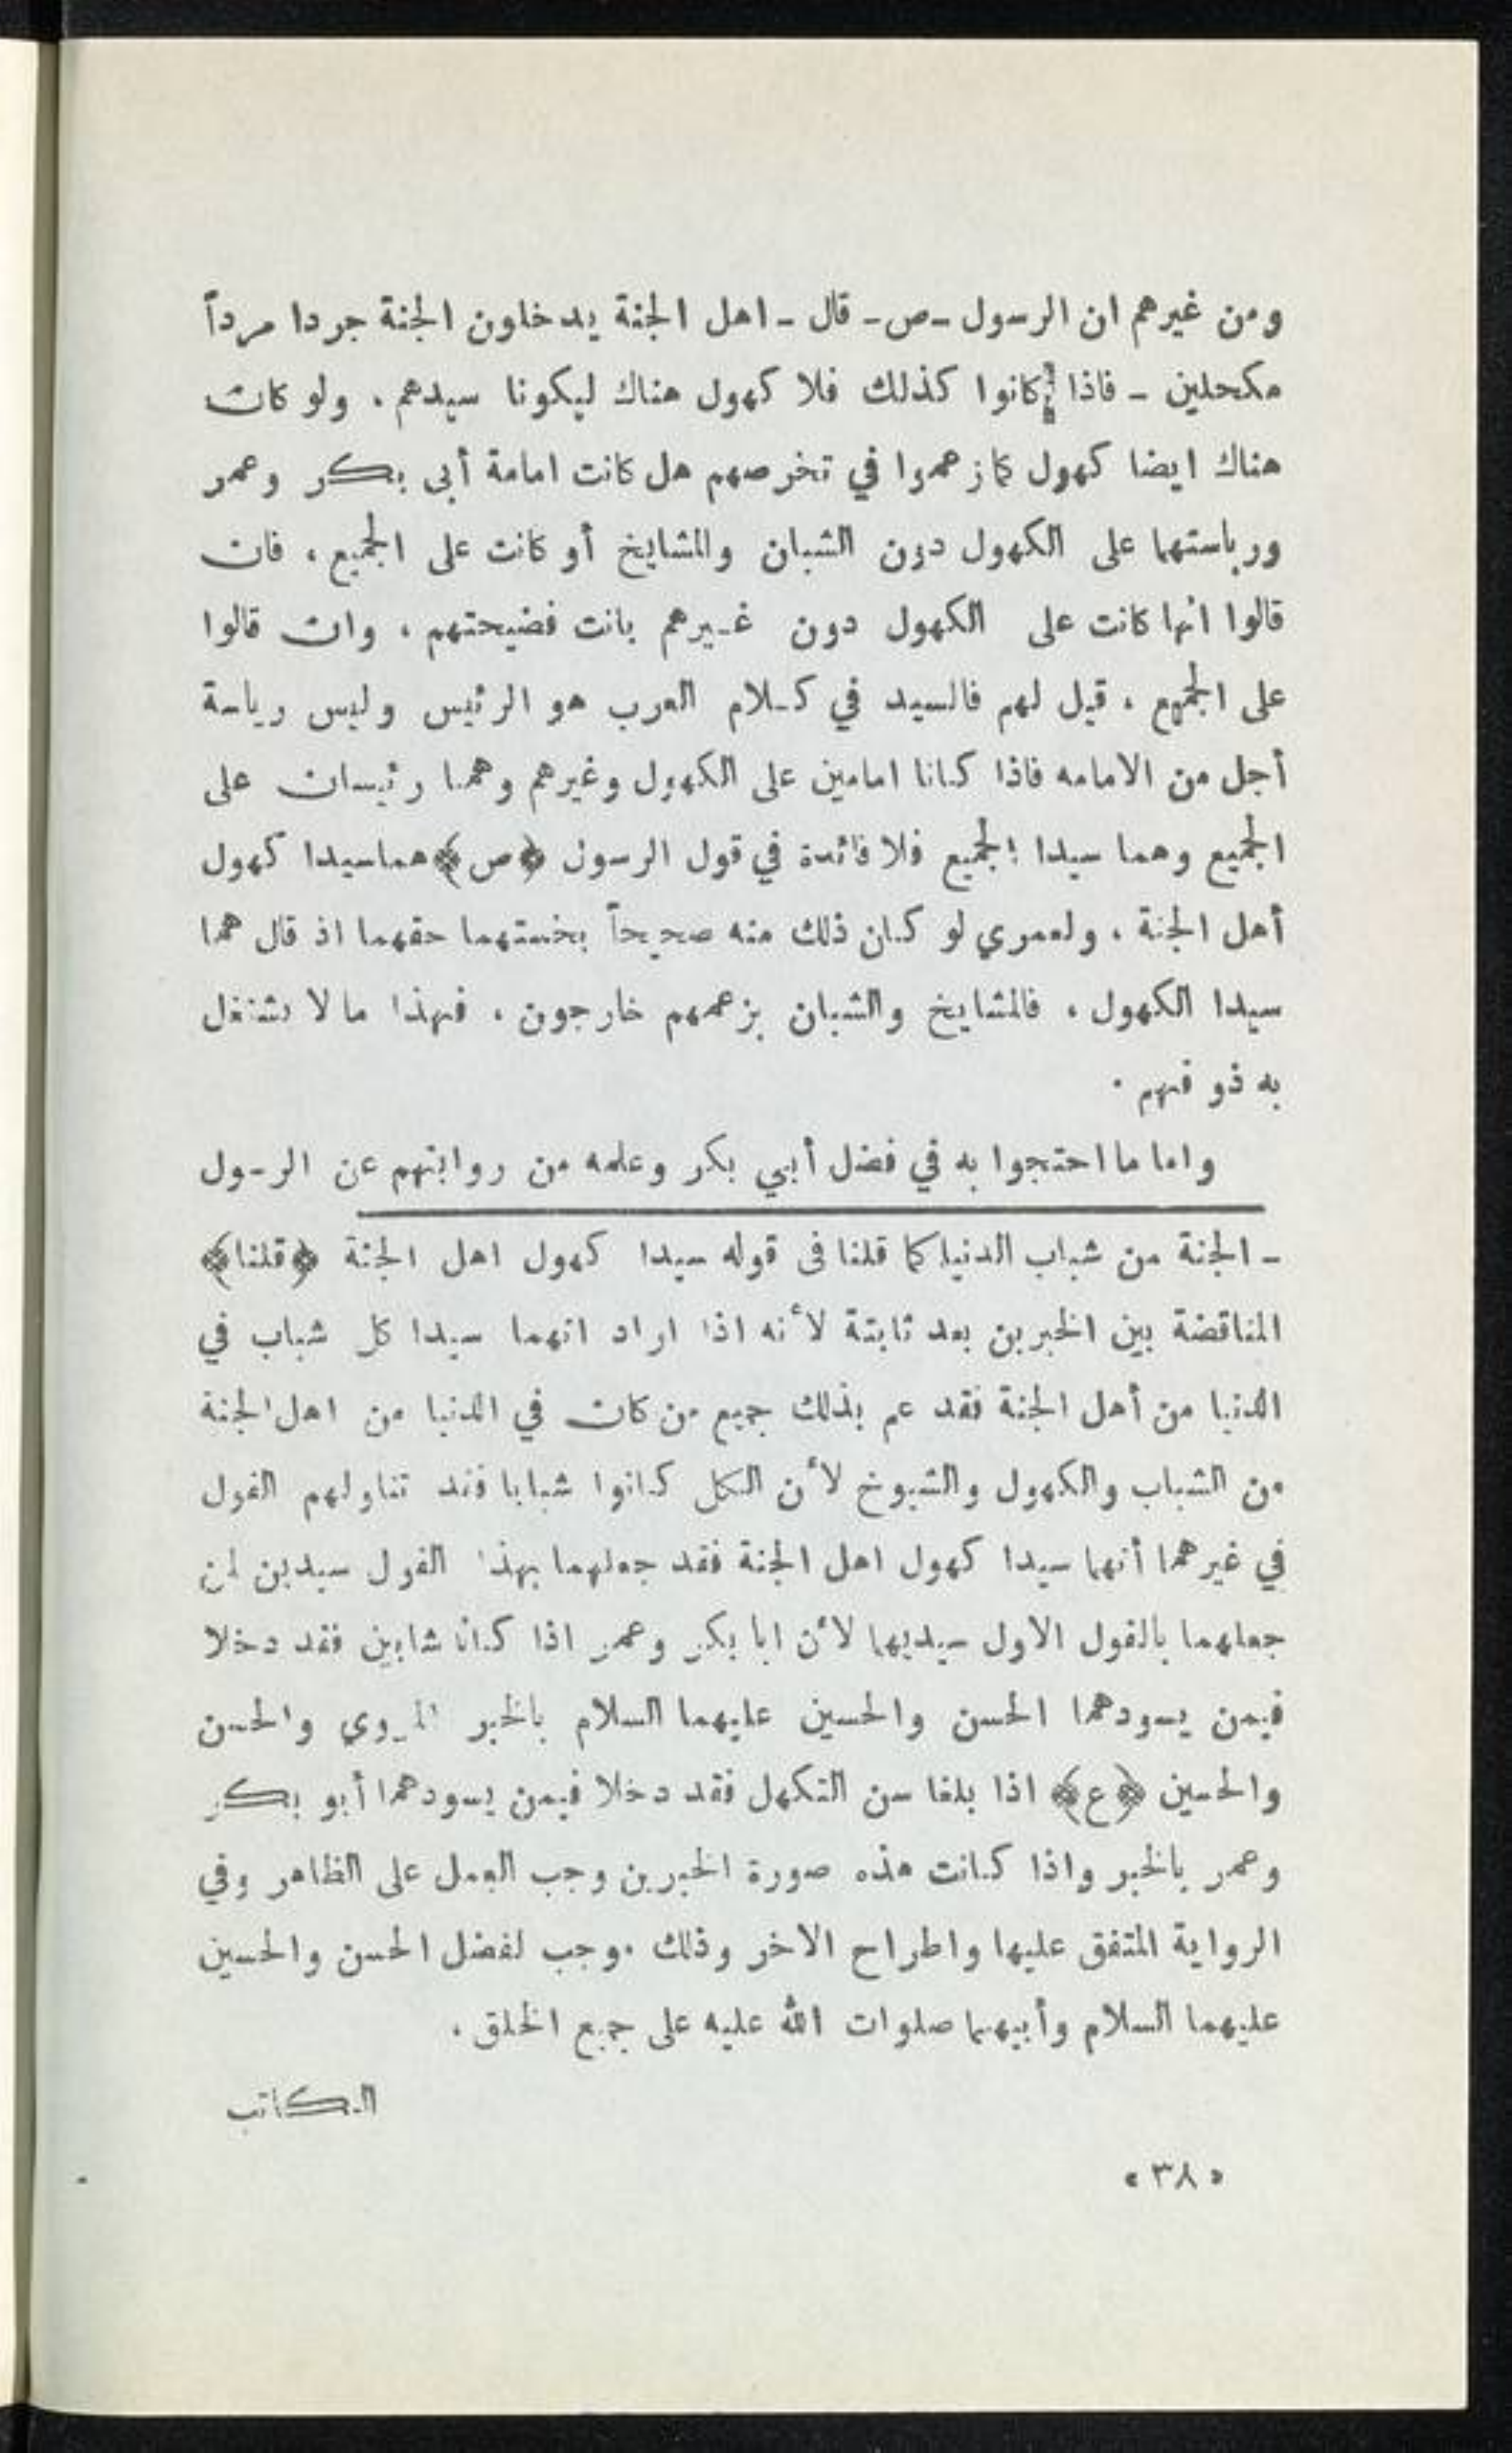 ومن غيرهم ان الرسول -ص- قال - اهل الجنة يدخلون الجنة جردا مرداً
مكحلين - فاذا كانوا كذلك فلا كهول هناك ليكونا سيدهم . ولو كان
هناك ايضا كهول كما زعموا في تخرصهم هل كانت امامة أبى بكر وعمر
ورياستهما على الكهول دون الشبان والمشايخ أو كانت على الجميع ، فان
قالوا انها كانت على الكهول دون غيرهم بانت فضيحتهم ، وان قالوا
على الجميع ، قيل لهم فالسيد في كلام العرب هو الرئيس وليس رياسة
أجل من الامامه فاذا كانا امامين على الكهول وغيرهم وهما رئيسان على
الجميع وهما سيدا الجميع فلا فائدة في قول الرسول ﴿ص﴾ هما سيدا كهول
أهل الجنة ، ولعمري لو كان ذلك منه صحيحاً بخستهما حقهما اذ قال هما
سيدا الكهول ، فالمشايخ والشبان بزعمهم خارجون ، فهذا ما لا يشتغل
به ذو فهم .
واما ما احتجوا به في فضل أبي بكر وعلمه من روايتهم عن الرسول
- الجنة من شباب الدنيا كما قلنا فى قوله سيدا كهول اهل الجنة ﴿قلنا﴾
المناقضة بين الخبرين بعد ثابتة لأنه اذا اراد انهما سيدا كل شباب في
الدنيا من أهل الجنة فقد عم بذلك جميع من كان في الدنيا من اهل الجنة
من الشباب والكهول والشيوخ لأن الكل كانوا شبابا فقد تناولهم القول
في غيرهما أنهما سيدا كهول اهل الجنة فقد جعلهما بهذا القول سيدين لمن
جعلهما بالقول الاول سيديهما لأن ابا بكر وعمر اذا كانا شابين فقد دخلا
فيمن يسودهما الحسن والحسين عليهما السلام بالخبر المروي والحسن
والحسين ﴿ع﴾ اذا بلغا سن التكهل فقد دخلا فيمن يسودهما أبو بكر
وعمر بالخبر واذا كانت هذه صورة الخبرين وجب العمل على الظاهر وفي
الرواية المتفق عليها واطراح الاخر وذلك موجب لفضل الحسن والحسين
عليهما السلام وأبيهما صلوات الله عليه على جميع الخلق .
الكاتب
«٣٨»